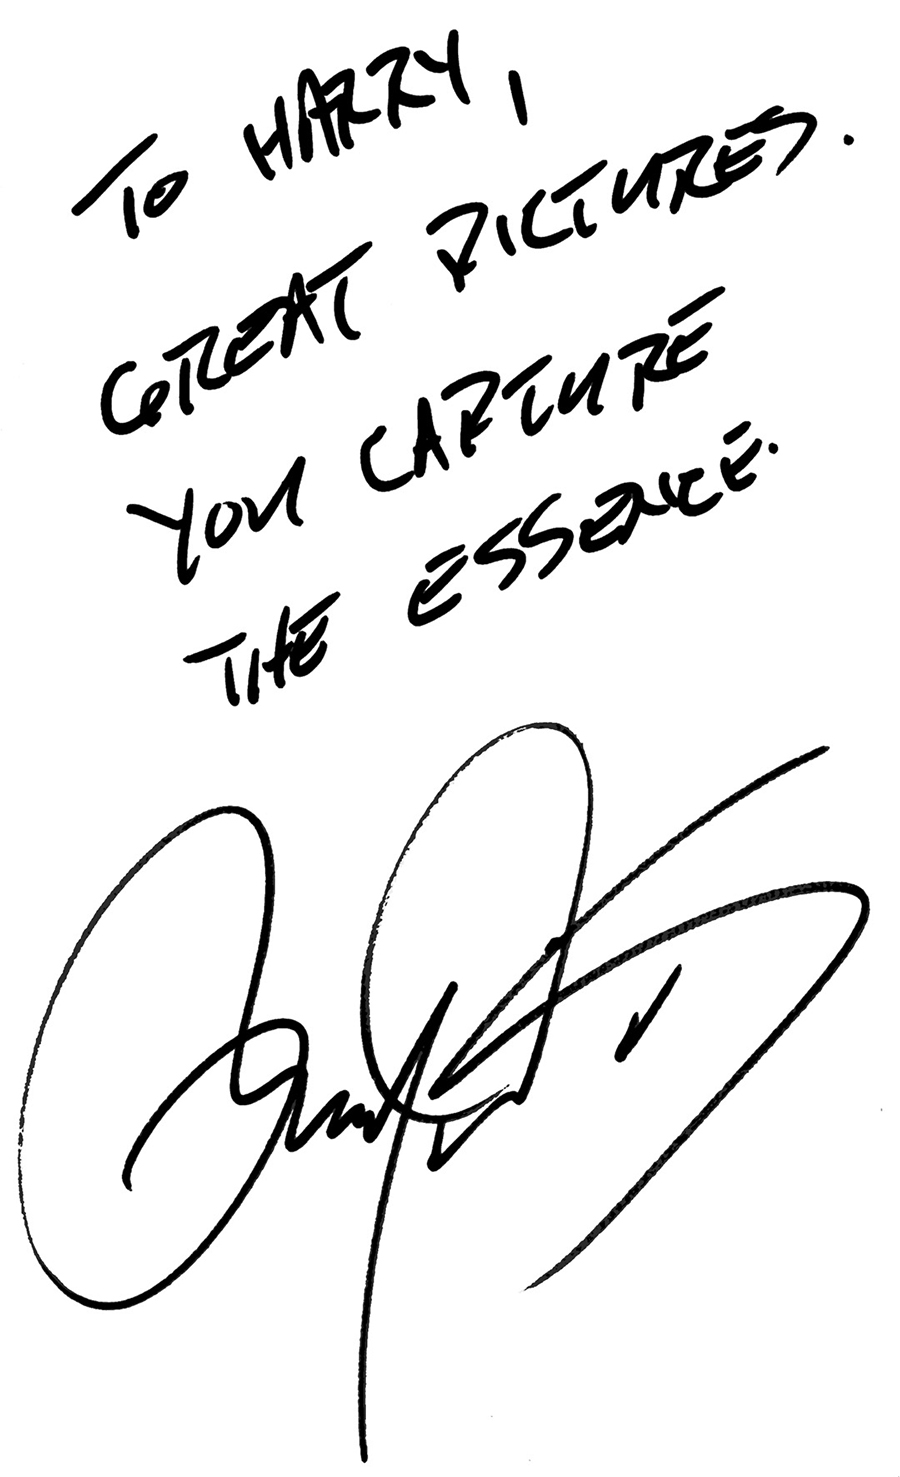 TO HARRY,
GREAT PICTURES.
YOU CAPTURE
THE ESSENCE.